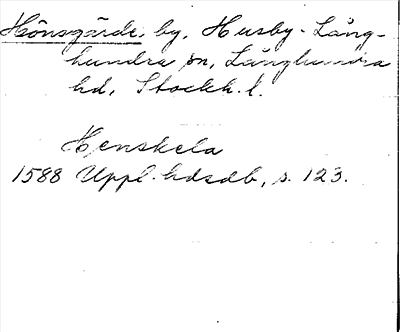 Hönsgärde, by, Husby-Lång-
hundra sn, Långhundra
hd, Stockh. l.
Henskela
1588 Uppl. hdsdb, s. 123.